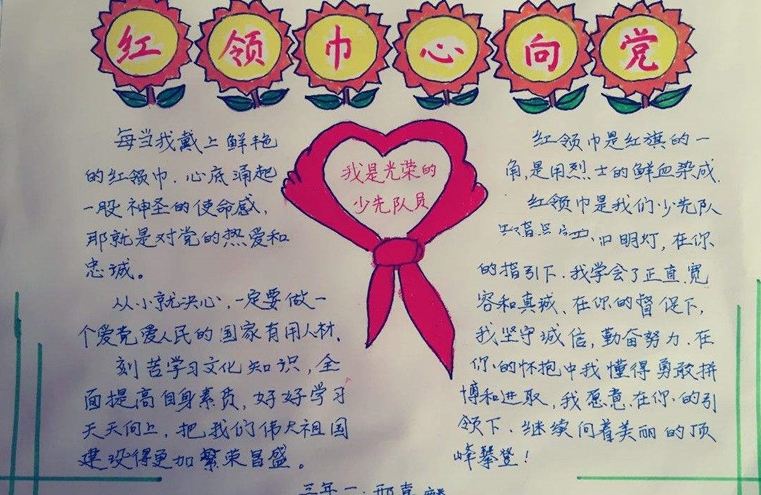 红领巾心向党
每当我戴上鲜艳
的红领巾.心底涌起
一股神圣的使命感,
那就是对党的热爱和
忠诚。
从小就决心,一定要做一
个爱党爱人民的国家有用人材.
刻苦学习文化知识,全
面提高自身素质,好好学习
天天向上,把我们伟大祖国
建设得更加繁荣昌盛。
我是光荣的
少先队员
红领巾是红旗的一
角,是用烈士的鲜血染成.
红领巾是我们少先队
明灯,在你
的指引下.我学会了正直.宽
容和真诚、在你的督促下,
我坚守诚信,勤奋努力.在
你的怀抱中我懂得勇敢拼
搏和进取,我愿意在你的引
领下.继续向着美丽的顶
峰攀登!
三年一